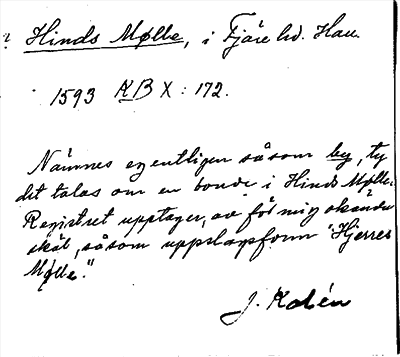 ? Hinds Mølle, i Fjäre hd. Hall.
1593 KB X: 172.
Nämnes egentligen såsom by, ty
det talas om en bonde i Hinds Mølle.
Registret upptager, av för mig okända
skäl, såsom uppslagsform "Hjerres
Mølle."
J. Kalén